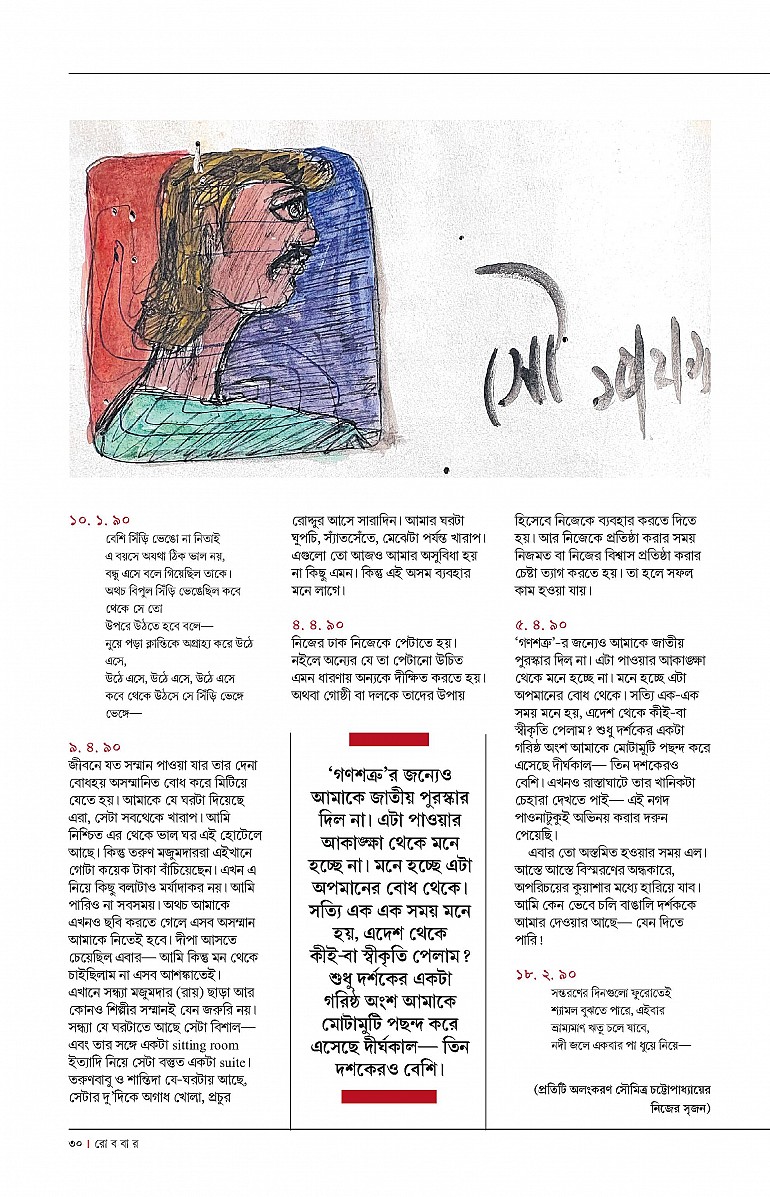 সৌ
১০. ১. ৯০
বেশি সিঁড়ি ভেঙো না নিতাই
এ বয়সে অযথা ঠিক ভাল নয়,
বন্ধু এসে বলে গিয়েছিল তাকে।
অথচ বিপুল সিঁড়ি ভেঙেছিল কবে
থেকে সে তো
উপরে উঠতে হবে বলে—
নুয়ে পড়া ক্লান্তিকে অগ্রাহ্য করে উঠে
এসে,
উঠে এসে, উঠে এসে, উঠে এসে
কবে থেকে ঊঠসে সে সিঁড়ি ভেঙ্গে
ভেঙ্গে—
৯. ৪. ৯০
জীবনে যত সম্মান পাওয়া যার তার দেনা
বোধহয় অসম্মানিত বোধ করে মিটিয়ে
যেতে হয়। আমাকে যে ঘরটা দিয়েছে
এরা, সেটা সবথেকে খারাপ। আমি
নিশ্চিত এর থেকে ভাল ঘর এই হোটেলে
আছে। কিন্তু তরুণ মজুমদাররা এইখানে
গোটা কয়েক টাকা বাঁচিয়েছেন। এখন এ
নিয়ে কিছু বলাটাও মর্যাদাকর নয়। আমি
পারিও না সবসময়। অথচ আমাকে
এখনও ছবি করতে গেলে এসব অসম্মান
আমাকে নিতেই হবে। দীপা আসতে
চেয়েছিল এবার— আমি কিন্তু মন থেকে
চাইছিলাম না এসব আশঙ্কাতেই।
এখানে সন্ধ্যা মজুমদার (রায়) ছাড়া আর
কোনও শিল্পীর সম্মানই যেন জরুরি নয়।
সন্ধ্যা যে ঘরটাতে আছে সেটা বিশাল—
এবং তার সঙ্গে একটা sitting room
ইত্যাদি নিয়ে সেটা বস্তুত একটা suite।
তরুণবাবু ও শান্তিদা যে-ঘরটায় আছে,
সেটার দু'দিকে অগাধ খোলা, প্রচুর
রোদ্দুর আসে সারাদিন। আমার ঘরটা
ঘুপচি, স্যাঁতসেঁতে, মেঝেটা পর্যন্ত খারাপ।
এগুলো তো আজও আমার অসুবিধা হয়
না কিছু এমন। কিন্তু এই অসম ব্যবহার
মনে লাগে।
৪. ৪. ৯০
নিজের ঢাক নিজেকে পেটাতে হয়।
নইলে অন্যের যে তা পেটানো উচিত
এমন ধারণায় অন্যকে দীক্ষিত করতে হয়।
অথবা গোষ্ঠী বা দলকে তাদের উপায়
'গণশত্রু'র জন্যেও
আমাকে জাতীয় পুরস্কার
দিল না। এটা পাওয়ার
আকাঙ্ক্ষা থেকে মনে
হচ্ছে না। মনে হচ্ছে এটা
অপমানের বোধ থেকে।
সত্যি এক এক সময় মনে
হয়, এদেশ থেকে
কীই-বা স্বীকৃতি পেলাম?
শুধু দর্শকের একটা
গরিষ্ঠ অংশ আমাকে
মোটামুটি পছন্দ করে
এসেছে দীর্ঘকাল— তিন
দশকেরও বেশি।
হিসেবে নিজেকে ব্যবহার করতে দিতে
হয়। আর নিজেকে প্রতিষ্ঠা করার সময়
নিজমত বা নিজের বিশ্বাস প্রতিষ্ঠা করার
চেষ্টা ত্যাগ করতে হয়। তা হলে সফল
কাম হওয়া যায়।
৫. ৪. ৯০
'গণশত্রু'-র জন্যেও আমাকে জাতীয়
পুরস্কার দিল না। এটা পাওয়ার আকাঙ্ক্ষা
থেকে মনে হচ্ছে না। মনে হচ্ছে এটা
অপমানের বোধ থেকে। সত্যি এক-এক
সময় মনে হয়, এদেশ থেকে কীই-বা
স্বীকৃতি পেলাম? শুধু দর্শকের একটা
গরিষ্ঠ অংশ আমাকে মোটামুটি পছন্দ করে
এসেছে দীর্ঘকাল— তিন দশকেরও
বেশি। এখনও রাস্তাঘাটে তার খানিকটা
চেহারা দেখতে পাই— এই নগদ
পাওনাটুকুই অভিনয় করার দরুন
পেয়েছি।
এবার তো অস্তমিত হওয়ার সময় এল।
আস্তে আস্তে বিস্মরণের অন্ধকারে,
অপরিচয়ের কুয়াশার মধ্যে হারিয়ে যাব।
আমি কেন ভেবে চলি বাঙালি দর্শককে
আমার দেওয়ার আছে— যেন দিতে
পারি!
১৮. ২. ৯০
সন্তরণের দিনগুলো ফুরোতেই
শ্যামল বুঝতে পারে, এইবার
ভ্রাম্যমাণ ঋতু চলে যাবে,
নদী জলে একবার পা ধুয়ে নিয়ে—
(প্রতিটি অলংকরণ সৌমিত্র চট্টোপাধ্যায়ের
নিজের সৃজন)
৩০ । রো ব বা র